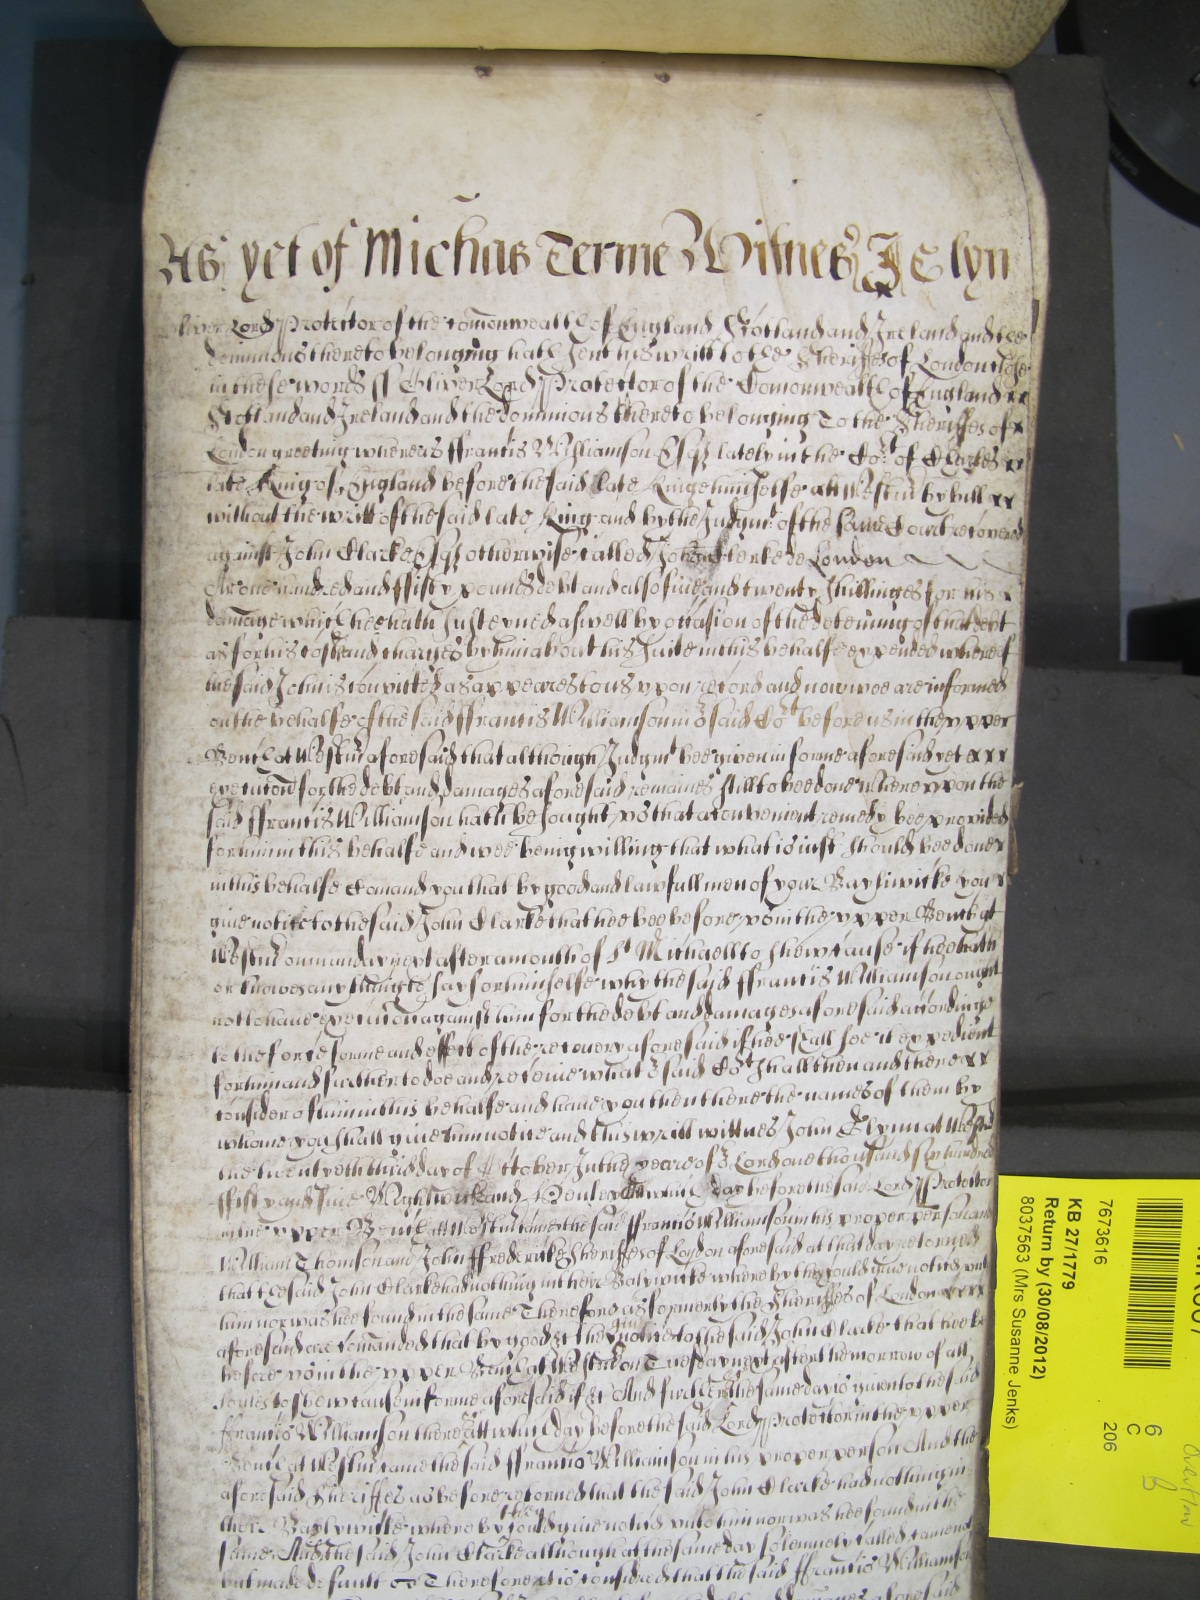 As yet of Michas Terme Witnes J Glyn
Oliver Lord Protector of the Comonwealth of England Scotland and Ireland and the
dominions thereto belonging hath sent his writt to the Sheriffes of London
in these words ss Oliver Lord Protector of the Comonwealth of England
Scotland and Ireland and the dominions thereto belonging To the Sheriffes of
London greeting whereas ffrancis Williamson Esqr lately in the Cort of Charles
late King of England before the said late Kinge himselfe att Westm by bill
without the writt of the said late King and by the Judgmt of the same Court recovered
against John Clarke Esqr otherwise called John Clerke de London
An one hundred and ffifty pounds debt and alsoe five and twenty shillinges for his
damage which hee hath susteyned aswell by occasion of the deteining of that debt
as for his costs and charges by him about his suite in this behalfe expended whereof
the said John is convicted as appeares to us upon record and now wee are informed
on the behalfe of the said ffrancis Williamson in or said Cort before us in the upper
Bench at Westm aforesaid that although Judgmt bee given in forme aforesaid yet
execucon for the debt and damages aforesaid remaines still to bee done Whereupon the
said ffrancis Williamson hath besought us that a convenient remedy bee provided
for him in this behalfe and wee being willing that what is just should bee done
in this behalfe Comand you that by good and lawfull men of your Bayliwicke you
give notice to the said John Clarke that hee bee before us in the upper Bench at
Westm on munday next after a month of St Michaell to shew cause if hee hath
or knowes any thing to say for himselfe why the said ffrancis Williamson ought
not to have execucion against him for the debt and damages aforesaid according
to the force forme and effect of the recovery aforesaid if hee shall see it expedient
for him and further to doe and receive what or said Cort shall then and there
consider of him in this behalfe and have you then there the names of them by
whome you shall give him notice and this writt wittnes John Glyn at Westm
the twentyeth third day of October In the yeare of or Lord one thousand six hundred
ffifty and five Wightwick and Henley Att which day before the said Lord Protector
in the upper Bench att Westm came the said ffrancis Williamson in his proper person and
William Thomson and John ffredericke Sheriffes of London aforesaid at that day retorned
that the said John Clarke had nothing in their Baylywicke whereby they could give notice unto
him nor was hee found in the same Therefore as formerly the Sheriffes of London
aforesaid are comanded that by good &c they give notice to the said John Clarke that hee be
before us in the upper Bench at Westm on Tuesday next after the morrow of all
soules to shew cause in forme aforesaid if &c And further the same day is given to the said
ffrancis Williamson there Att which day before the said Lord Protector in the upper
Bench at Westm came the said ffrancis Williamson in his proper person And the
aforesaid Sheriffes as before retorned that the said John Clarke had nothing in
their Baylywicke whereby they could give notice unto him nor was hee found in the
same And the said John Clarke although at the same day solemnely called came not
but made default Therefore it is considered that the said ffrancis Williamson
7673616
KB 27/1779
Return by (30/08/2012)
8037563 (Mrs Susanne Jenks)
6
C
206